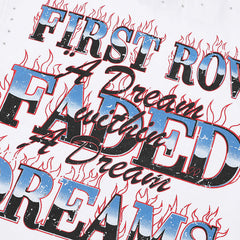 FIRST ROW
"A Dream
within
FADED
A Dream
DREAMS